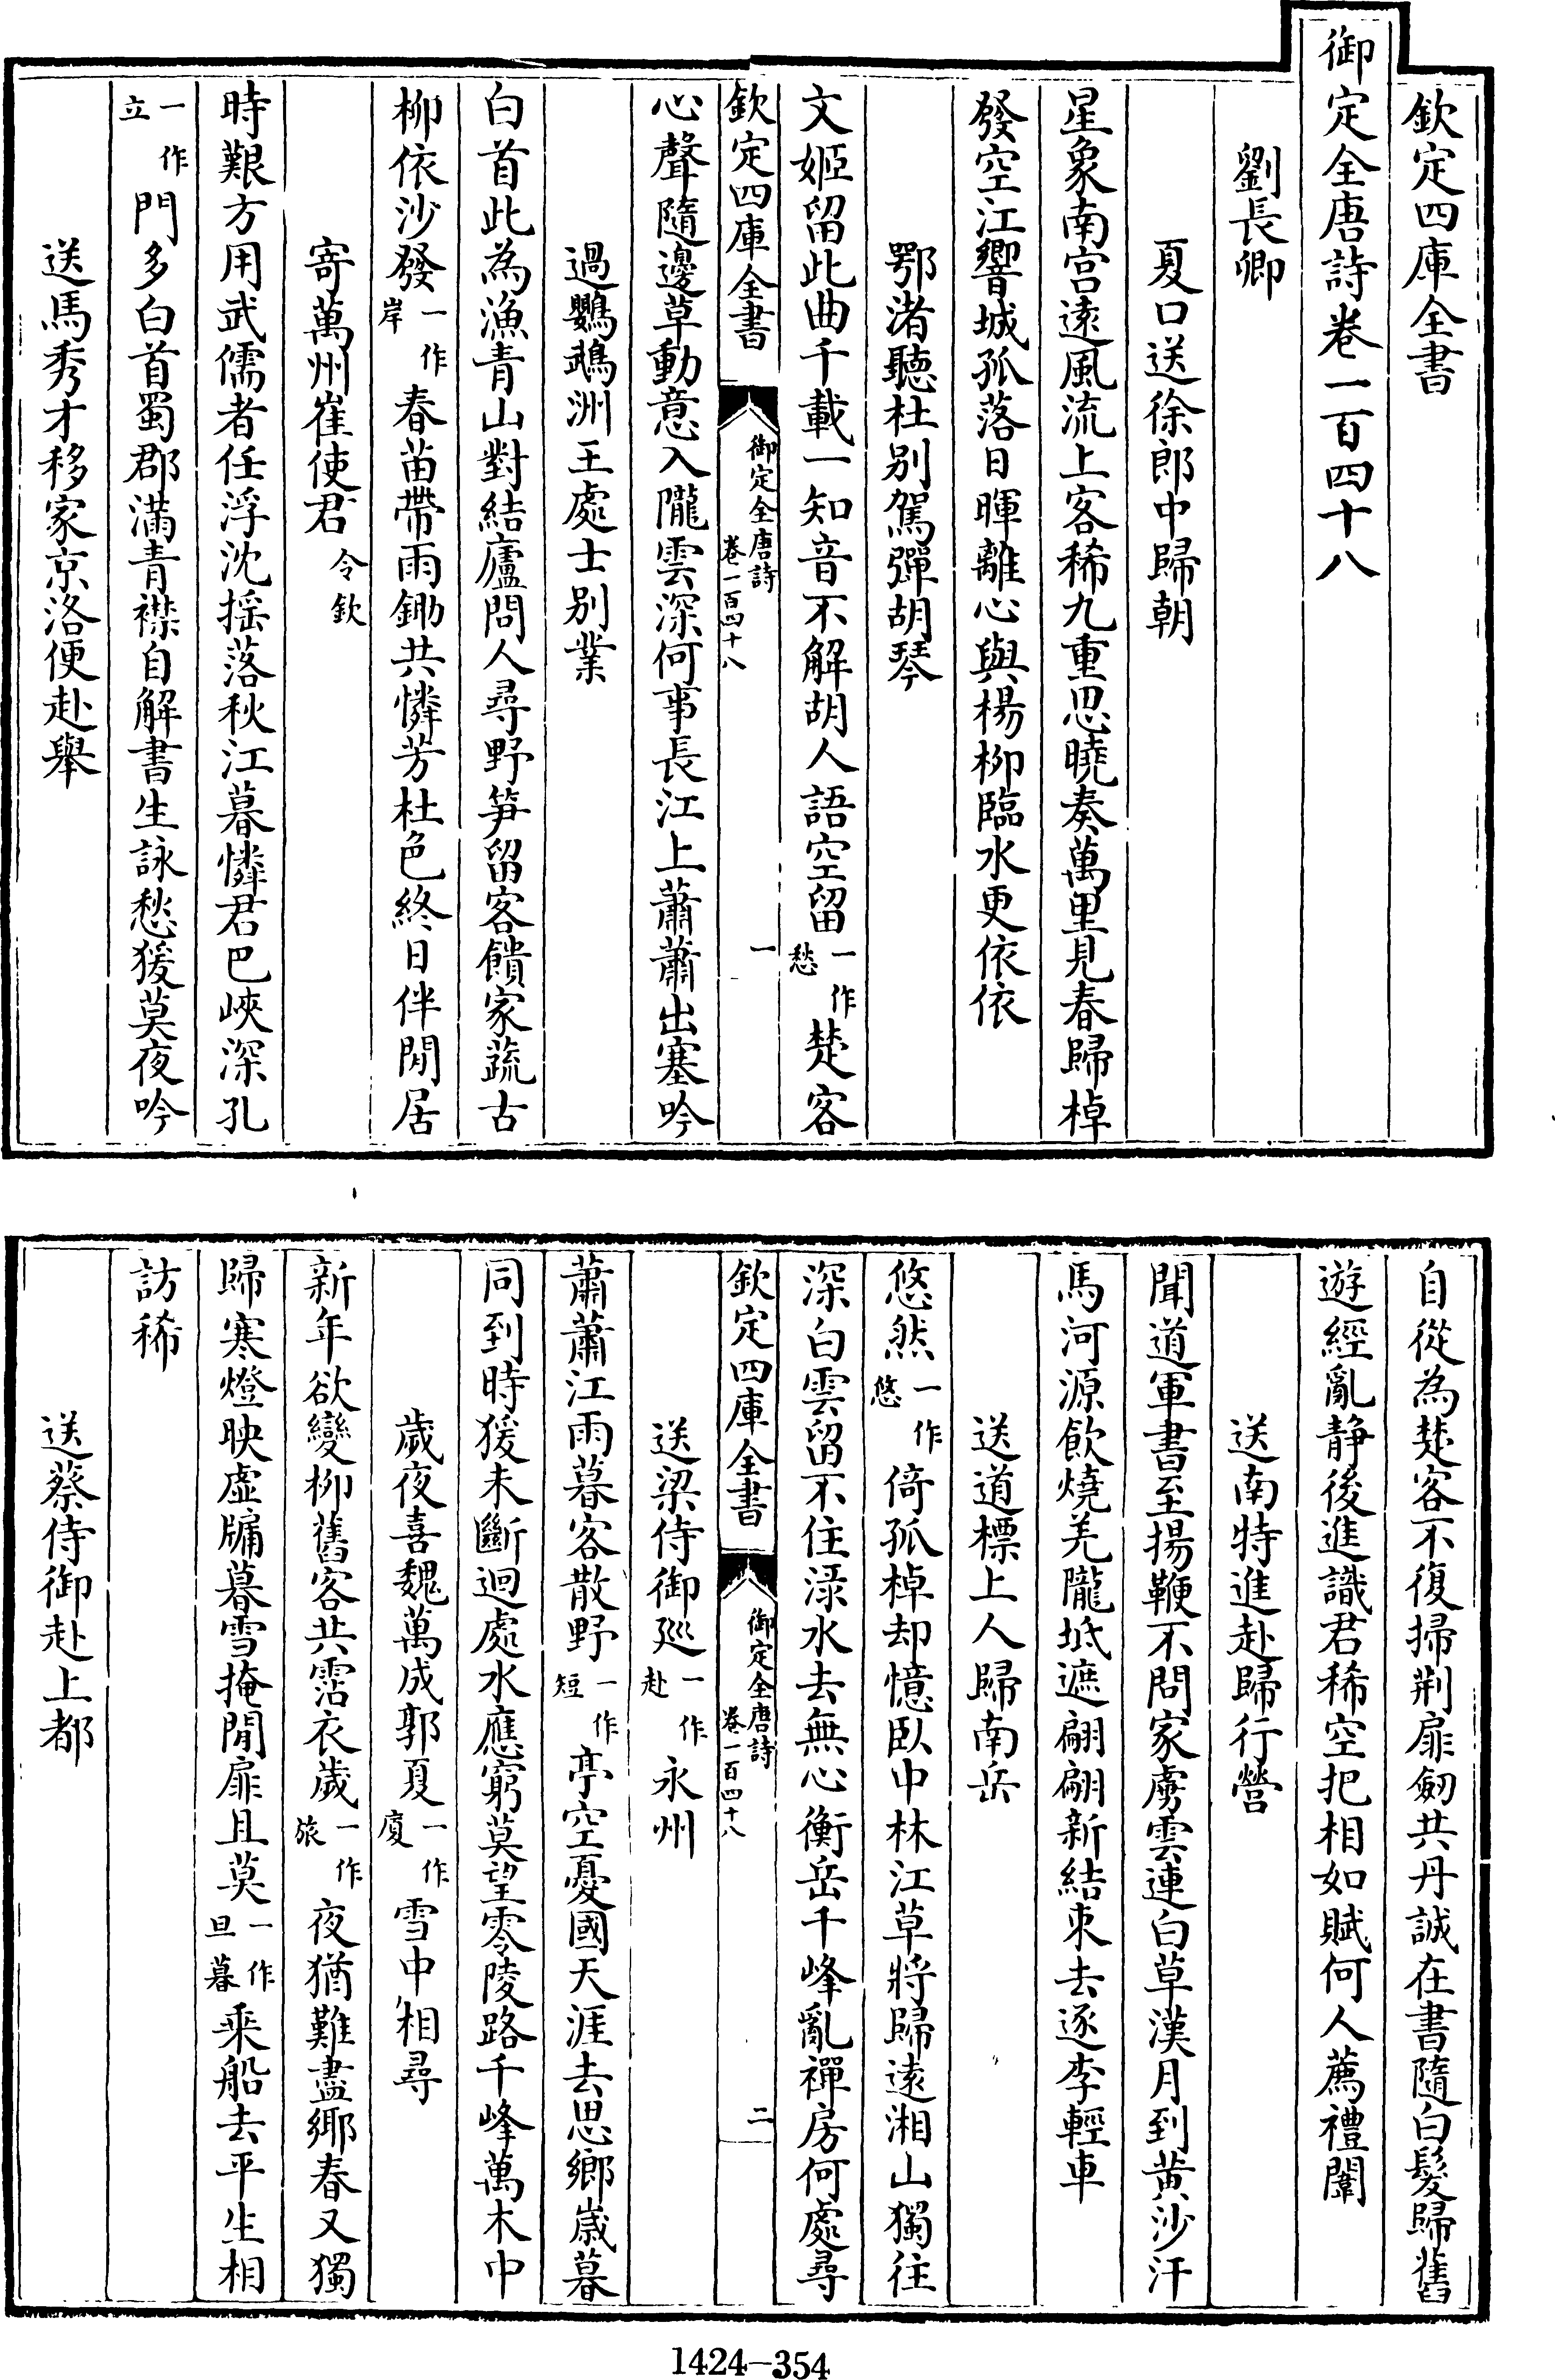 欽定四庫全書
御定全唐詩卷一百四十八
劉長卿
夏口送徐郎中歸朝
星象南宫遠風流上客稀九重思曉奏萬里見春歸棹
發空江響城孤落日暉離心與楊柳臨水更依依
鄂渚聽杜别駕彈胡琴
文姬留此曲千載一知音不解胡人語空留一作愁楚客
欽定四庫全書 御定全唐詩卷一百四十八 一
心聲隨邊草動意入隴雲深何事長江上蕭蕭出塞吟
過鸚鵡洲王處士别業
白首此為漁青山對結廬問人尋野笋留客饋家蔬古
柳依沙發一作岸春苗帶雨鋤共憐芳杜色終日伴閒居
寄萬州崔使君令欽
時艱方用武儒者任浮沈揺落秋江暮憐君巴峽深孔
一作立門多白首蜀郡滿青襟自解書生詠愁猨莫夜吟
送馬秀才移家京洛便赴舉
自從為楚客不復掃荆扉劒共丹誠在書隨白髮歸舊
遊經亂静後進識君稀空把相如賦何人薦禮闈
送南特進赴歸行營
聞道軍書至揚鞭不問家虜雲連白草漢月到黄沙汗
馬河源飲燒羌隴坻遮翩翩新結束去逐李輕車
送道標上人歸南岳
悠然一作悠倚孤棹却憶臥中林江草將歸遠湘山獨往
深白雲留不住渌水去無心衡岳千峰亂禪房何處尋
欽定四庫全書 御定全唐詩卷一百四十八 二
送梁侍御廵一作赴永州
蕭蕭江雨暮客散野一作短亭空憂國天涯去思鄉歳暮
同到時猨未斷迴處水應窮莫望零陵路千峰萬木中
歲夜喜魏萬成郭夏一作廈雪中相尋
新年欲變柳舊客共霑衣歲一作旅夜猶難盡鄉春又獨
歸寒燈映虛牖暮雪掩閒扉且莫一作旦暮乘船去平生相
訪稀
送蔡侍御赴上都
1424-354